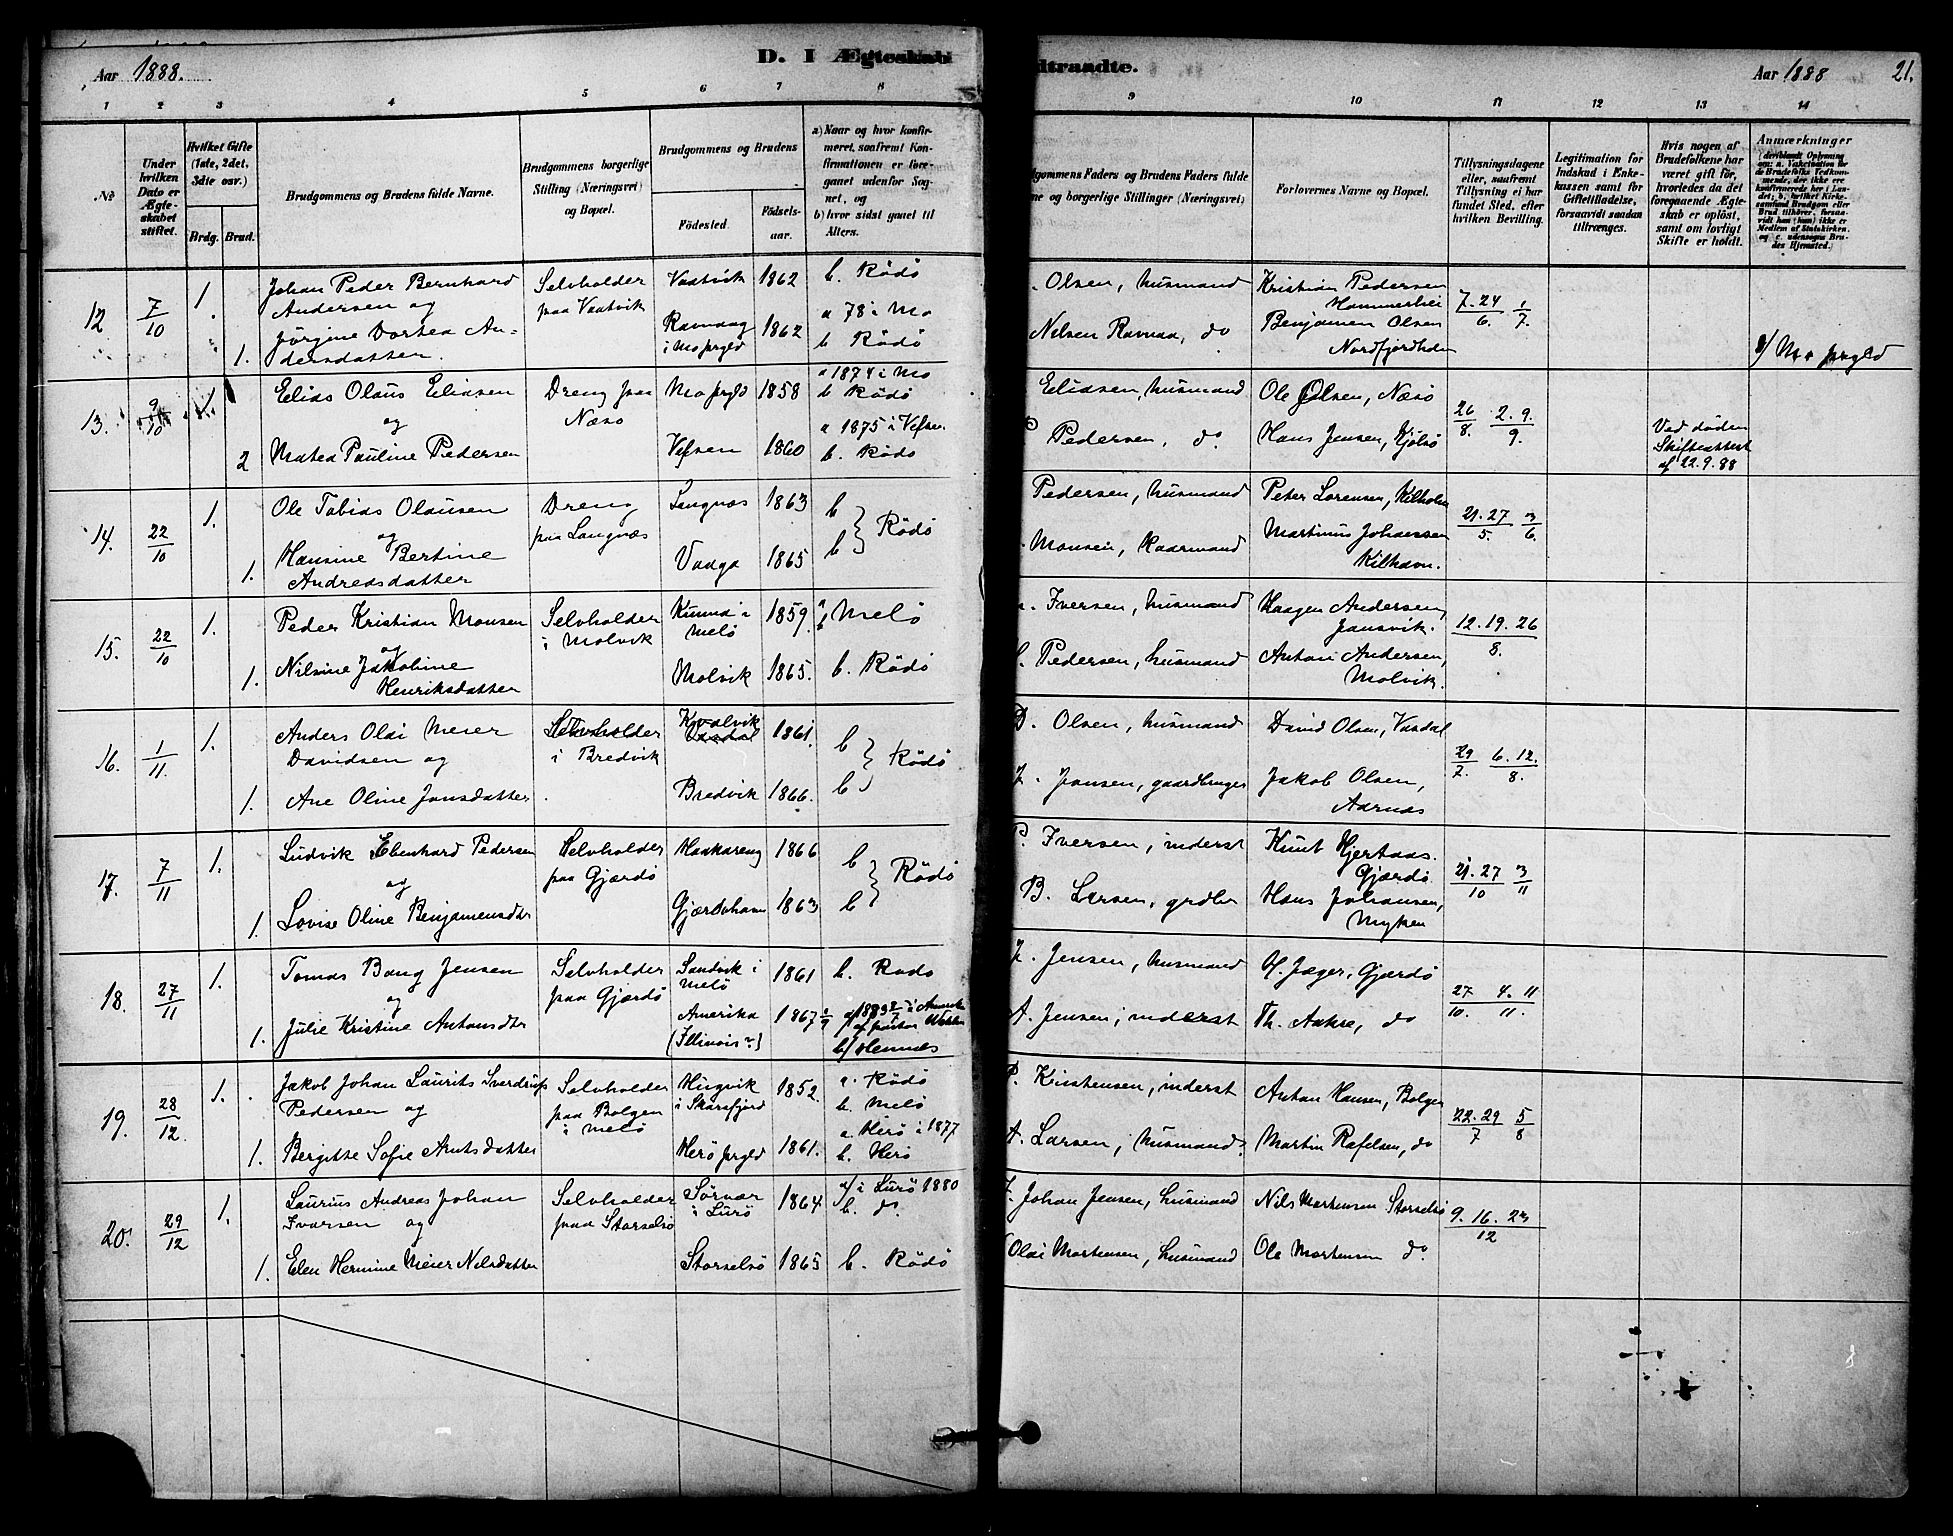 Aar 1888.
D. I Ægteskab
1 2 3 4 5 6 7 8
№
Under hvilken Dato er Ægteskabet stiftet.
Hvilket Gifte (1ste, 2det, 3die osv.)
Brdg. Brud.
Brudgommens og Brudens fulde Navne.
Brudgommens borgerlige Stilling (Næringsvei) og Bopæl.
Brudgommens og Brudens
Fødested.
Fødselsaar.
a) Naar og hvor konfirmeret, saafremt Konfirmationen er foreganet udenfor Sognet, og
b) hvor sidst ganet til Alters.
12 7/10 1. Johan Peder Bernhard Selvholder Vaatvik 1862 b. Rödö
Andersen og paa Vaatvik
Jörgine Dortea An- Ravnaag 1862 a 78 i Mo
1. dersdatter. i Mo prgld b Rödö
13. 9/10 1. Elias Olaus Eliasen Dreng paa Mo prgld 1858 a 1874 i Mo
og Næsö b Rödö
2 Matea Pauline Pedersen Vefsen 1860 a 1875 i Vefsn.
b. Rödö
14. 22/10 1. Ole Tobias Olausen Dreng Langnæs 1863 b
og paa Langnæs Rödö
Hansine Bertine Vaaga 1865 b
1. Andreasdatter
15. 22/10 1. Peder Kristian Monsen Selvholder Kunna i 1859. Melö
og i Molvik Melö
Nilsine Jakobine Molvik 1865. b. Rödö
1. Henriksdatter
16. 1/11. 1. Anders Olai Meier Selvholder Kvalvik 1861. b
Davidsen og i Bredvik Rödö
1. Ane Oline Jonsdatter Bredvik 1866. b
17. 7/11 1. Ludvik Ebenhard Pedersen Selvholder Haakareng 1866 b
og paa Gjærdö Rödö
1. Lovise Oline Benjamensdtr Gjærdöhavn 1863 b
18. 27/11 1. Tomas Bang Jensen Selvholder Sandvik i 1861 b. Rödö
og paa Gjærdö Melö
1. Julie Kristine Antonsdtr Amerika 1867 1/9
(Illinois?) b/ Hemnæs
19. 28/12. 1. Jakob Johan Laurits Sverdrup Selvholder Hugvik 1852. a. Rödö
Pedersen og paa Bolgen i Skarsfjord b. Melö
i Melö a Herö i 1877
1. Bergitte Sofie Arntsdatter Herö prgld 1861. b. Herö
20. 29/12 1. Laurius Andreas Johan Selvholder Sörvær 1864 a/ i Lurö 1880
Ivarsen og paa Storselsö i Lurö b. do
1. Elen Hermine Meier Nilsdatter Storselsö 1865 b. Rödö
dtraadte.
Aar 1888 21.
9 10 11 12 13 14
dgommens Faders og Brudens Faders fulde
ne og borgerlige Stillinger (Næringsvei)
Forlovernes Navne og Bopæl.
Tillysningsdagene eller, saafremt Tillysning ei har fundet Sted, efter hvilken Bevilling.
Legitimation for Indskud i Enkekassen samt for Giftetilladelse, forsaavidt saadan tiltrænges.
Hvis nogen af Brudefolkene har været gift før, hvorledes da det foregaaende Ægteskab er opløst, samt om lovligt Skifte er holdt.
Anmærkninger
(deriblandt Oplysning om: a. Vakcination for de Brudefolks Vedkommende, der ikke ere konfirmerede her i Landet; b. hvilket Kirkesamfund Brudgom eller Brud tilhører, forsaavidt han (hun) ikke er Medlem af Statskirken, og c. udensogns Brudes Hjemsted.)
Olsen, husmand Kristian Pedersen 7. 24/6. 1/7.
Hammerhei
Nilsen Ravnaa, do Benjamen Olsen
Nordfjordheien c/ Mo prgld
Eliasen, husmand Ole Olsen, Næsö 26/8. 2. 9./9.
Pedersen, do. Hans Jensen, Hjölsö Ved döden
Skifteattest
af 22.9.88
Pedersen, husmand Peter Lorensen, Kilhavn 21. 27/5. 3/6.
Monsen, kaarmand Martinus Johansen
Kilhavn.
Iversen, husmand Haagen Andersen, 12. 19. 26/8.
Jonsvik.
Pedersen, husmand Anton Andersen,
Molvik.
D. Olsen, husmand David Olsen, Vasdal 29/7. 6. 12./8.
J. Jonsen, gaardbruger Jakob Olsen,
Aarnæs
P. Iversen, inderst Knut Hjertaas. 21. 27/10 3/11
Gjærdö
B. Larsen, grdbr Hans Johansen,
Myken
J. Jensen, husmand H. Jæger, Gjærdö 27/10. 4. 11/11.
A. Jensen, inderst Th. Aakre, do
P. Kristensen, inderst Anton Hansen, Bolgen 22. 29/7 5/8
A. Larsen, husmand. Martin Rafelsen, do
Johan Jensen, husmand Nils Mortensen Storselsö 9. 16. 23/12
Olai Mortensen, husmand Ole Mortensen do.